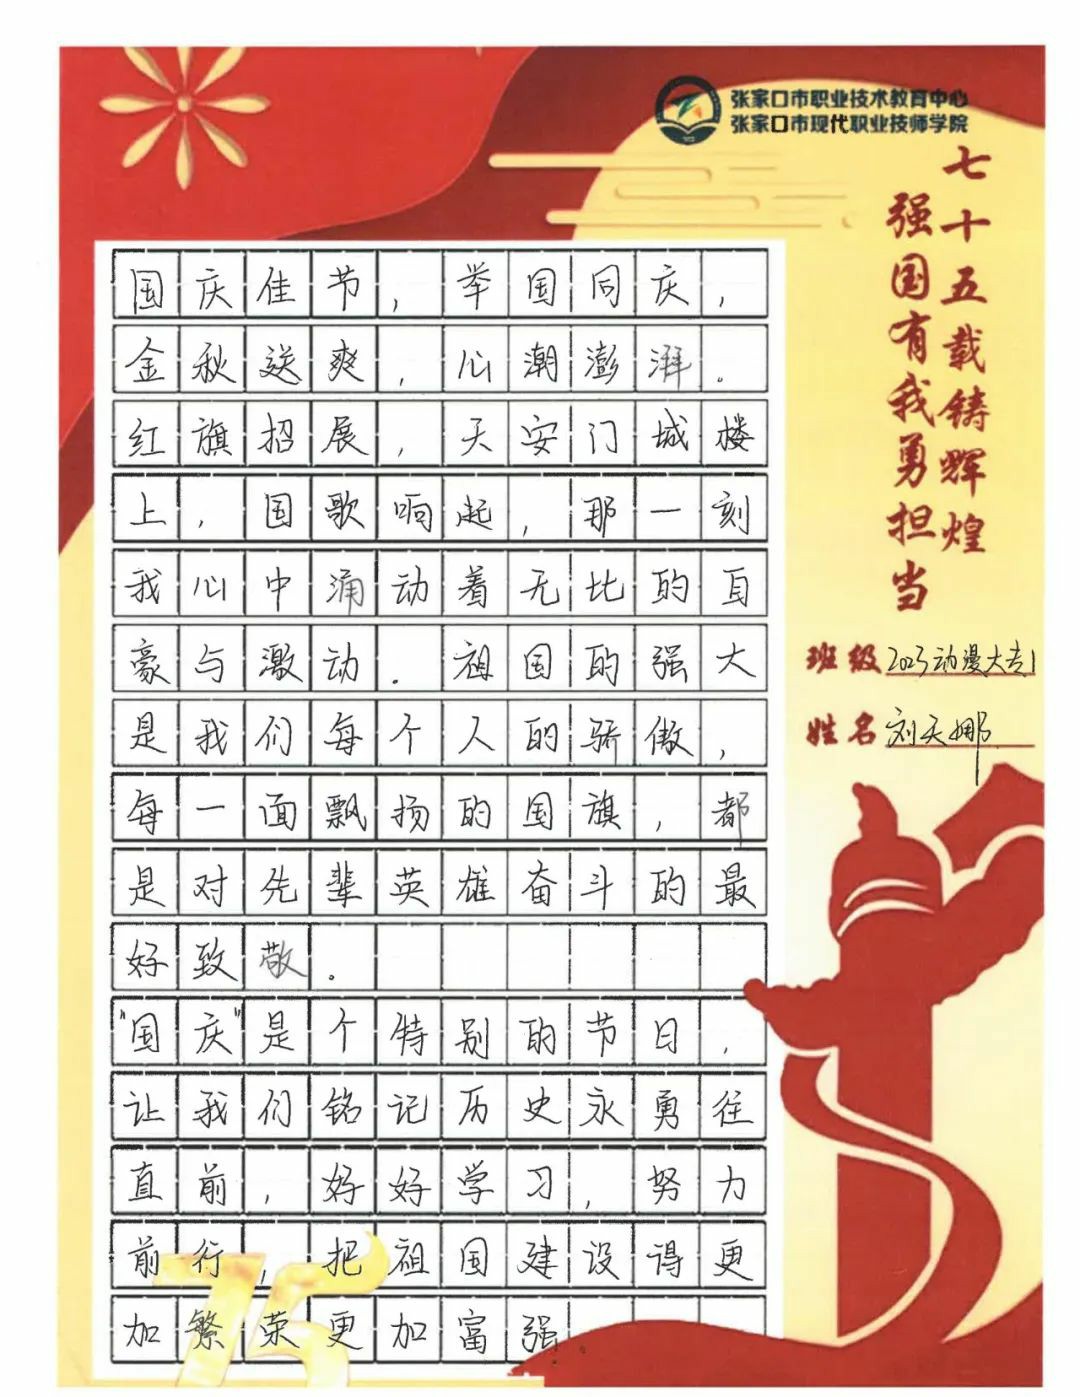 张家口市职业技术教育中心
张家口市现代职业技师学院
七十五载铸辉煌
强国有我勇担当
班级 2023动漫大专1
姓名 刘天娜
国庆佳节，举国同庆，
金秋送爽，心潮澎湃。
红旗招展，天安门城楼
上，国歌响起，那一刻
我心中涌动着无比的自
豪与激动.祖国的强大
是我们每个人的骄傲，
每一面飘扬的国旗，都
是对先辈英雄奋斗的最
好致敬。
"国庆"是个特别的节日，
让我们铭记历史永勇往
直前，好好学习，努力
前行，把祖国建设得更
加繁荣更加富强.
75